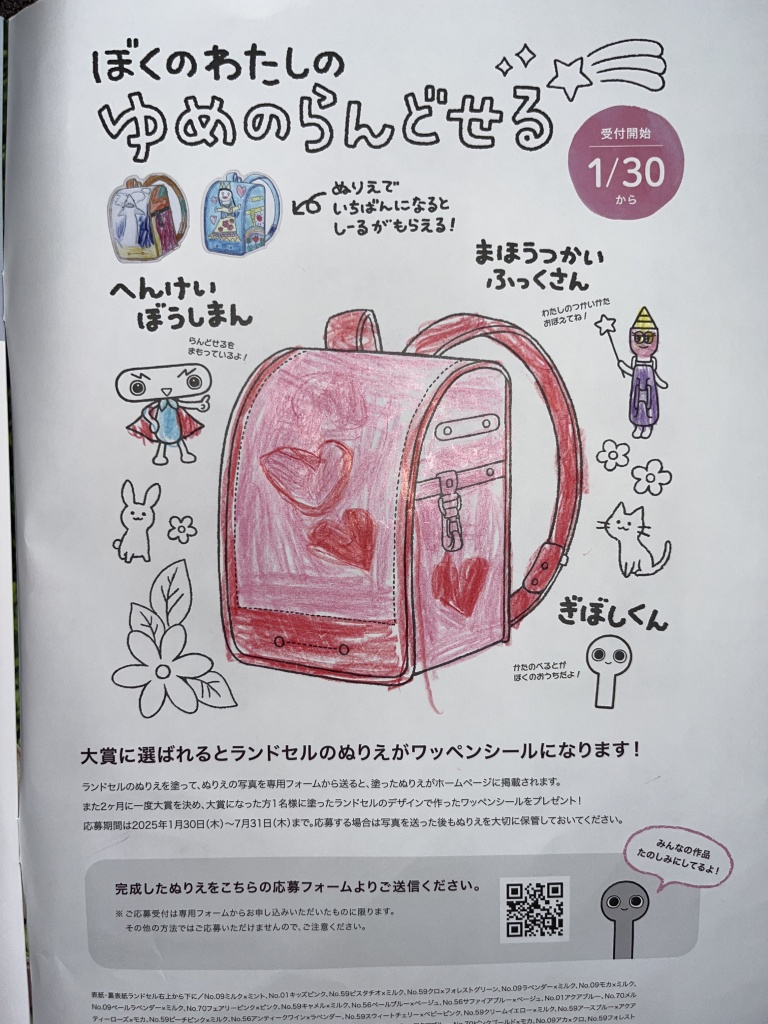 ぼくのわたしの
ゆめのらんどせる
受付開始
1/30
から
ぬりえで
いちばんになると
しーるがもらえる!
まほうつかい
ふっくさん
わたしのつかいかた
おぼえてね!
へんけい
ぼうしまん
らんどせるを
まもっているよ!
ぎぼしくん
かたのべるとが
ぼくのおうちだよ!
大賞に選ばれるとランドセルのぬりえがワッペンシールになります!
ランドセルのぬりえを塗って、ぬりえの写真を専用フォームから送ると、塗ったぬりえがホームページに掲載されます。
また2ヶ月に一度大賞を決め、大賞になった方1名様に塗ったランドセルのデザインで作ったワッペンシールをプレゼント!
応募期間は2025年1月30日(木)~7月31日(木)まで。応募する場合は写真を送った後もぬりえを大切に保管しておいてください。
みんなの作品
たのしみにしてるよ!
完成したぬりえをこちらの応募フォームよりご送信ください。
※ご応募受付は専用フォームからお申し込みいただいたものに限ります。
その他の方法ではご応募いただけませんので、ご注意ください。
表紙・裏表紙ランドセル右上から下に/No.09ミルク×ミント、No.01キッズピンク、No.59ピスタチオ×ミルク、No.59クロ×フォレストグリーン、No.09ラベンダー×ミルク、No.09モカ×ミルク、
No.09ペールラベンダー×ミルク、No.70フェアリーピンク×ピンク、No.59キャメル×ミルク、No.56ペールブルー×ベージュ、No.56サファイアブルー×ベージュ、No.01アクアブルー、No.70メル
ティーローズ×モカ、No.59ピーチピンク×ミルク、No.56アンティークワイン×ラベンダー、No.59スウィートチェリー×ベビーピンク、No.59クリームイエロー×ミルク、No.59アースブルー×アクア